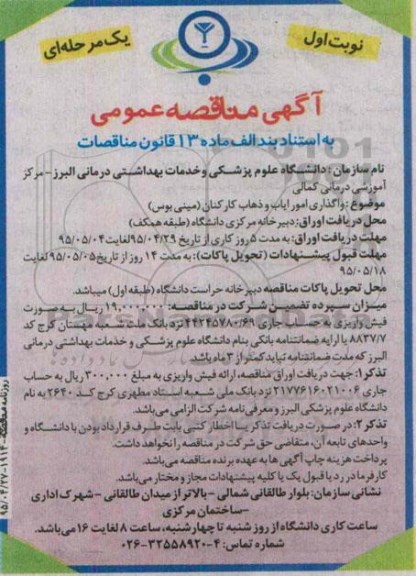 نوبت اول
یک مرحله‌ای
آگهی مناقصه عمومی
به استناد بند الف ماده ۱۳ قانون مناقصات
نام سازمان: دانشگاه علوم پزشکی و خدمات بهداشتی درمانی البرز - مرکز
آموزشی درمانی کمالی
موضوع: واگذاری امور ایاب و ذهاب کارکنان (مینی بوس)
محل دریافت اوراق: دبیرخانه مرکزی دانشگاه (طبقه همکف)
مهلت دریافت اوراق: به مدت ۵ روز کاری از تاریخ ۹۵/۰۴/۲۹ لغایت ۹۵/۰۵/۰۴
مهلت قبول پیشنهادات (تحویل پاکات): به مدت ۱۴ روز از تاریخ ۹۵/۰۵/۰۵ لغایت
۹۵/۰۵/۱۸
محل تحویل پاکات مناقصه دبیرخانه حراست دانشگاه (طبقه اول) میباشد.
میزان سپرده تضمین شرکت در مناقصه: ۱۹,۰۰۰,۰۰۰ ریال به صورت
فیش واریزی به حساب جاری ۴۴۲۴۵۷۸۰/۶۹ نزد بانک ملت شعبه طالقان کرج کد
۸۸۲۷/۷ یا ارایه ضمانتنامه بانکی بنام دانشگاه علوم پزشکی و خدمات بهداشتی درمانی
البرز که مدت ضمانتنامه نباید کمتر از ۳ ماه باشد
تذکر۱: جهت دریافت اوراق مناقصه، ارائه فیش واریزی به مبلغ ۳۰۰,۰۰۰ ریال به حساب
جاری ۲۱۷۷۶۱۶۰۲۱۰۰۶ نزد بانک ملی شعبه استاد مطهری کرج کد ۲۶۴۰ به نام
دانشگاه علوم پزشکی البرز و معرفی نامه شرکت الزامی می‌باشد.
تذکر۲: در صورت دریافت تذکر یا اخطار کتبی بابت طرف قرارداد بودن با دانشگاه و
واحدهای تابعه آن، متقاضی حق شرکت در مناقصه را نخواهد داشت.
پرداخت هزینه چاپ آگهی ها به عهده برنده مناقصه می‌باشد.
کارفرما در رد یا قبول یک یا کلیه پیشنهادات مجاز و مختار می‌باشد.
نشانی سازمان: بلوار طالقانی شمالی - بالاتر از میدان طالقانی - شهرک اداری
-ساختمان مرکزی
ساعت کاری دانشگاه از روز شنبه تا چهارشنبه، ساعت ۸ لغایت ۱۶ می‌باشد.
شماره تماس: ۴-۳۲۵۵۸۹۲۰-۰۲۶